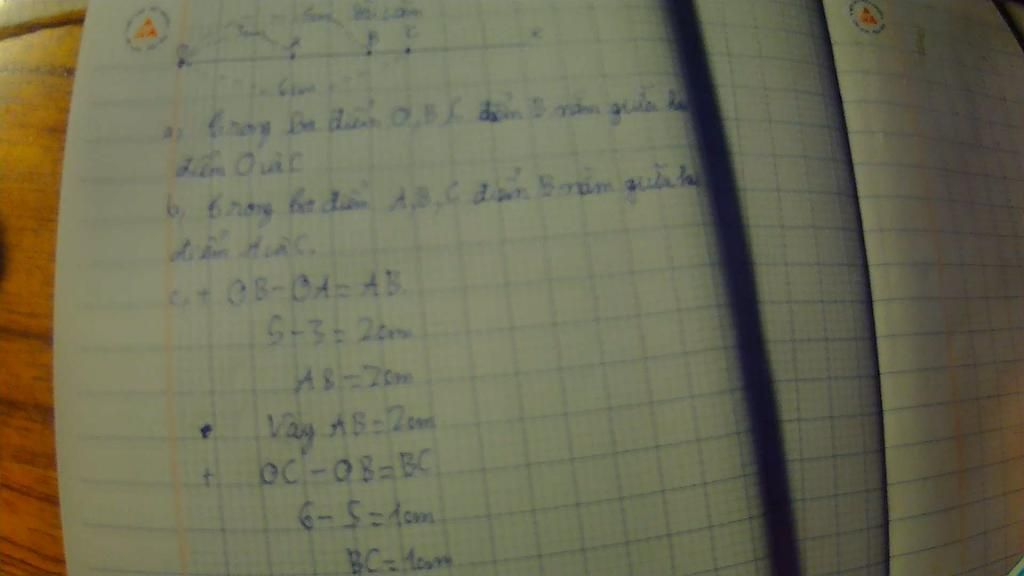 5cm
3cm
O A B C x
6cm
a, trong ba điểm O, B, C điểm B nằm giữa hai
điểm O và C
b, trong ba điểm A, B, C điểm B nằm giữa hai
điểm A và C.
c, + OB - OA = AB
5 - 3 = 2cm
AB = 2cm
Vậy AB = 2cm
+ OC - OB = BC
6 - 5 = 1cm
BC = 1cm